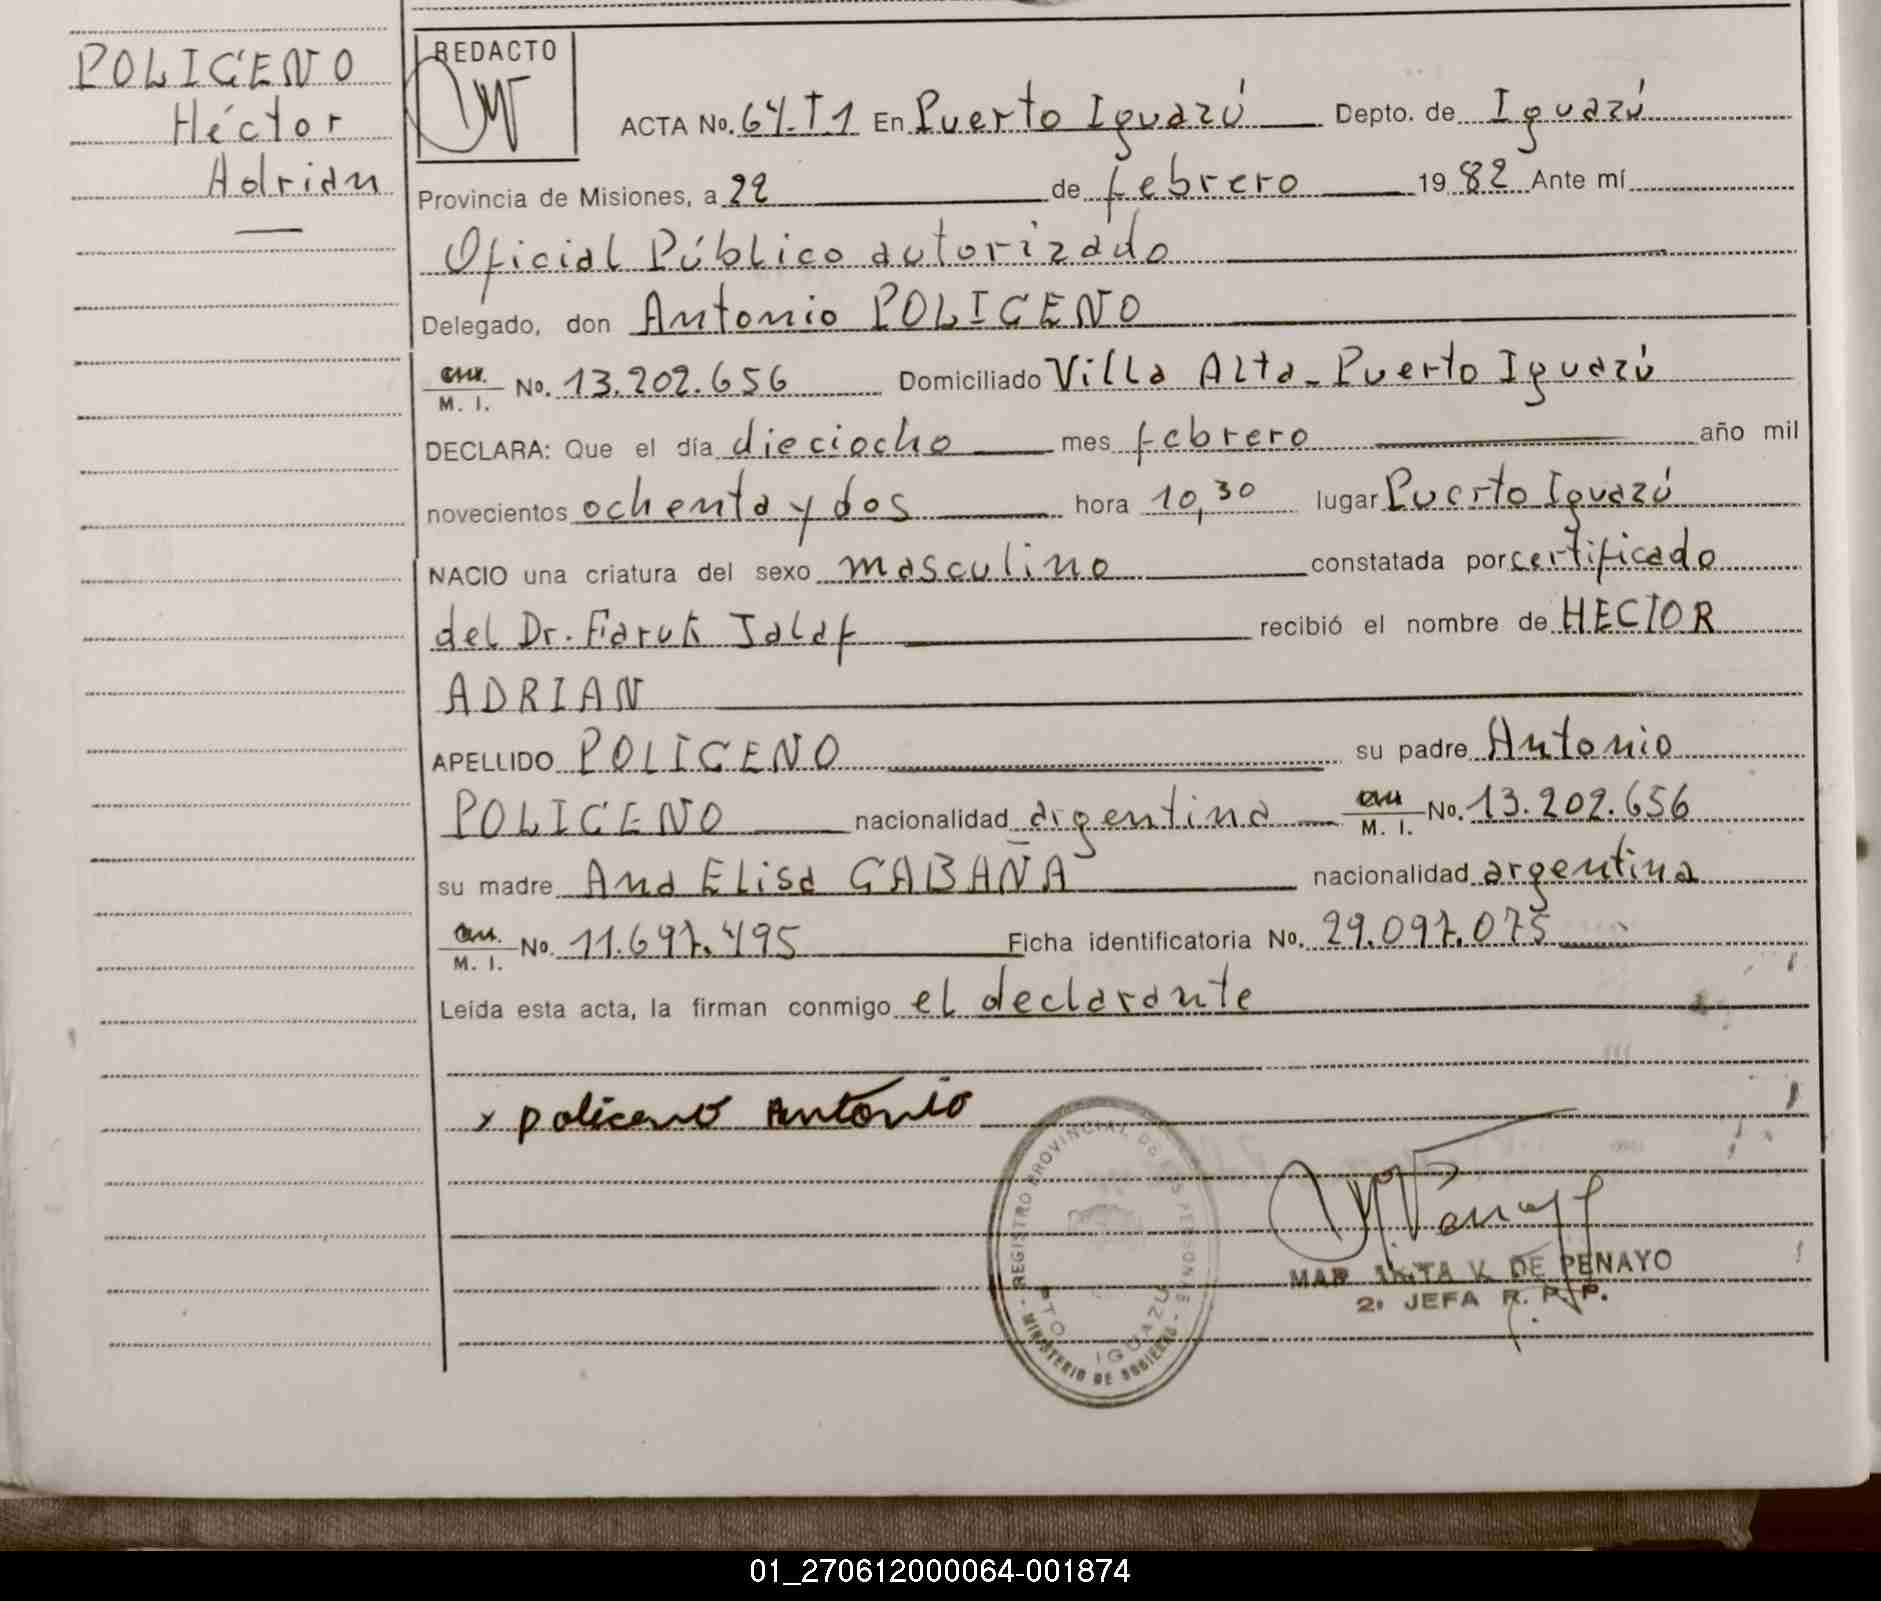 POLICENO
Héctor
Adrian
REDACTO
ACTA No. 64.T1 En Puerto Iguazú Depto. de Iguazú
Provincia de Misiones, a 22 de febrero 1982 Ante mí
Oficial Público autorizado
Delegado, don Antonio POLICENO
M. I. No. 13.202.656 Domiciliado Villa Alta - Puerto Iguazú
DECLARA: Que el día dieciocho mes febrero año mil
novecientos ochenta y dos hora 10,30 lugar Puerto Iguazú
NACIO una criatura del sexo masculino constatada por certificado
del Dr. Faruk Jalaf recibió el nombre de HECTOR
ADRIAN
APELLIDO POLICENO su padre Antonio
POLICENO nacionalidad argentina M. I. No. 13.202.656
su madre Ana Elisa CABAÑA nacionalidad argentina
M. I. No. 11.697.495 Ficha identificatoria No. 29.097.075
Leída esta acta, la firman conmigo el declarante
x policeno Antonio
REGISTRO PROVINCIAL DE LAS PERSONAS
PTO IGUAZU
- MINISTERIO DE GOBIERNO -
V. DE PENAYO
2º JEFA R. P. P.
01_270612000064-001874